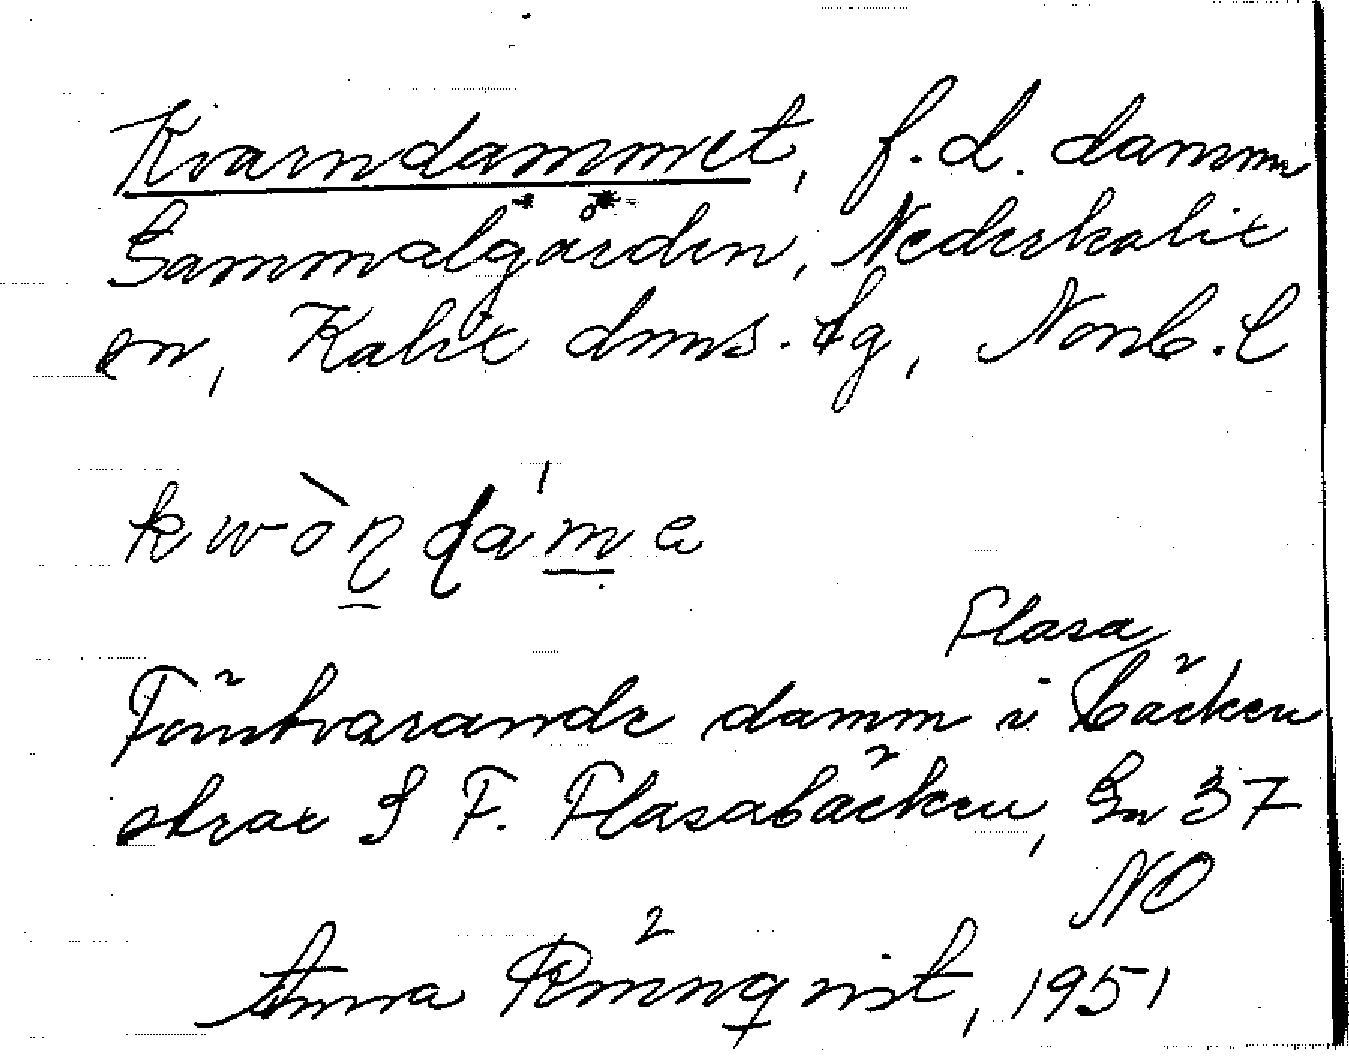 Kvarndammet, f.d. damm
Gammalgården, Nederkalix
sn, Kalix dms. tg, Norrb. l
kwòṇḍa'me
Flasa
Förutvarande damm i bäcken
strax S F. Flasabäcken, Gn 37
NO
Anna Rönnqvist, 1951